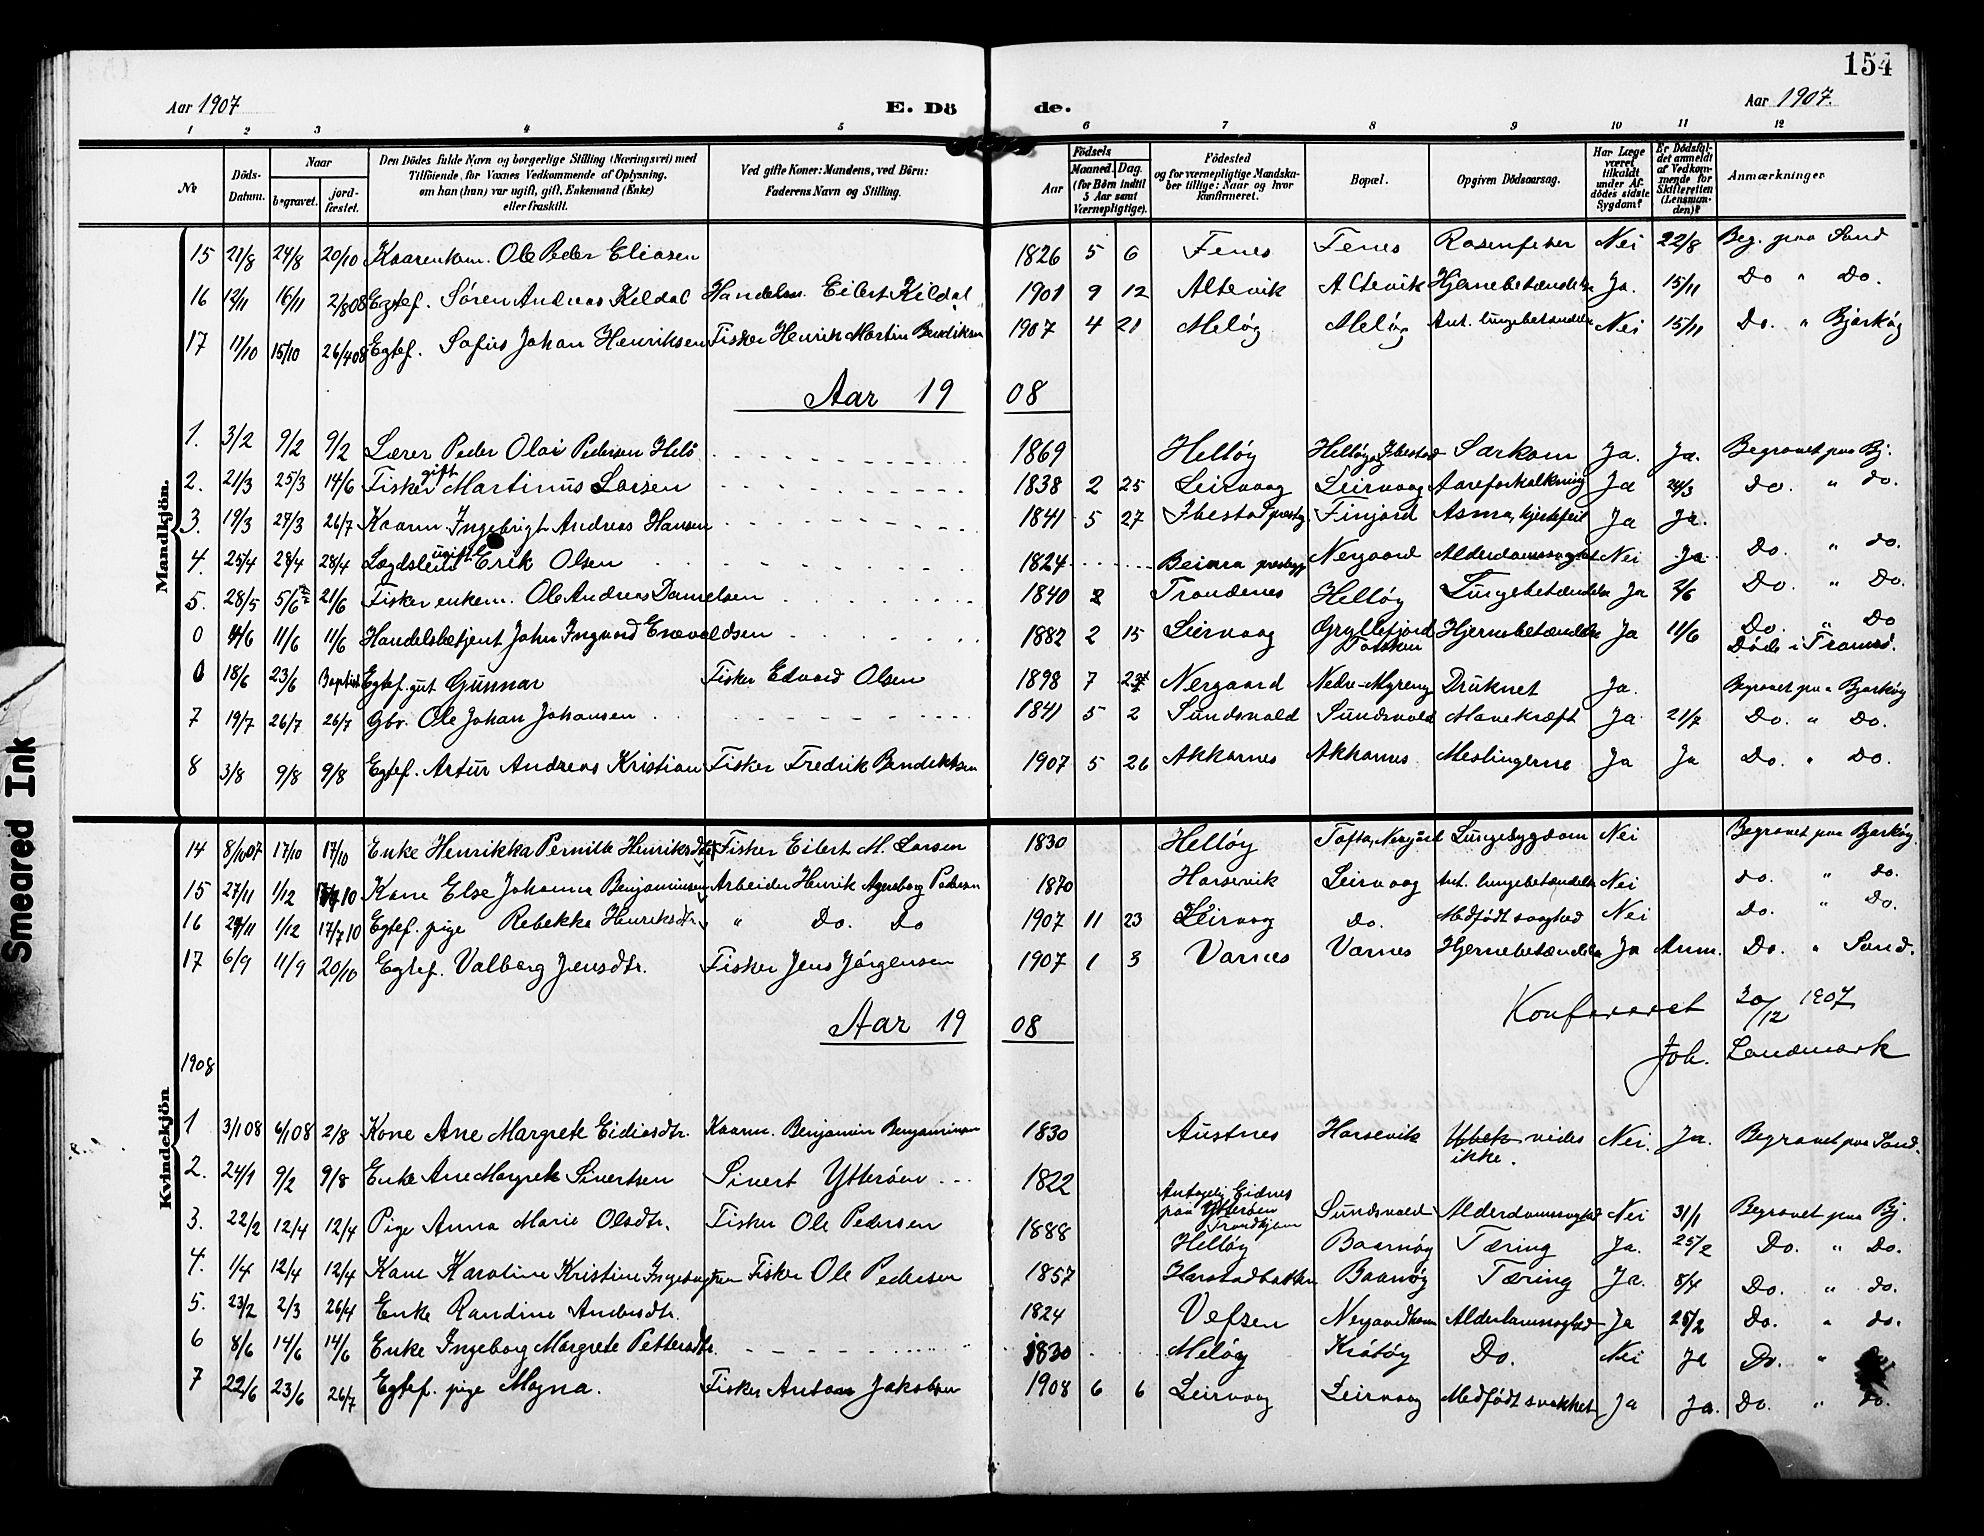 154
Aar 1907 E. Dö de. Aar 1907.
1 2 3 4 5 6 7 8 9 10 11 12
No
Döds-Datum.
Naar
begravet.
jord-fæstet.
Den Dödes fulde Navn og borgerlige Stilling (Næringsvei) med
Tilföiende, for Voxnes Vedkommende af Oplysning,
om han (hun) var ugift, gift, Enkemand (Enke)
eller fraskilt.
Ved gifte Koner: Mandens, ved Börn:
Faderens Navn og Stilling.
Födsels
Aar
Maaned. Dag.
(for Börn indtil
5 Aar samt
Værnepligtige).
Födested
og for værnepligtige Mandska-
ber tillige: Naar og hvor
konfirmeret.
Bopæl.
Opgiven Dödsaarsag.
Har Læge
været
tilkaldt
under Af-
dödes sidste
Sygdom?
Er Dödsfal-
det anmeldt
af Vedkom-
mende for
Skifteretten
(Lensman-
den)?
Anmærkninger
Mandkjön.
15 21/8 24/8 20/10 Kaarenkom. Ole Peder Eliasen 1826 5 6 Fenes Fenes Rosenfeber Nei 22/8 Beg. paa Sand
16 12/11 16/11 2/808 Egtef. Søren Andreas Kildal Handelsm. Eilert Kildal 1901 9 12 Altevik Altevik Hjernebetændelse Ja. 15/11 Do " Do.
17 11/10 15/10 26/408 Egtef. Sofus Johan Henriksen Fisker Henrik Martin Bendiksen 1907 4 21 Meløy Meløy Ant. lungebetændelse Nei 15/11 Do. " Bjarkøy
Aar 19 08
1. 3/2 9/2 9/2 Lærer Peder Olai Pedersen Helø 1869 Helløy Helløy, Ibestad Sarkom Ja. Ja. Begravet paa Bj.
2. 21/3 25/3 14/6 Fisker gift Martinus Larsen 1838 2 25 Leirvaag Leirvaag Aareforkalkning Ja 24/3 Do. " do.
3. 19/3 27/3 26/7 Kaarm. Ingebrigt Andreas Hansen 1841 5 27 Ibestad prestg. Finjord Asma, hjertefeil Ja Ja.
4. 25/4 28/4 28/4 Lægdslem ugift Erik Olsen 1824 Beiarn prestegj. Nergaard Alderdomssvaghed Nei Ja Do. " do.
5. 28/5 5/6 21/6 Fisker enkem. Ole Andreas Danielsen 1840 2 Trondenes Helløy Lungebetændelse Ja 2/6 Do. " Do.
0 4/6 11/6 11/6 Handelsbetjent John Ingvard Enevoldsen 1882 2 15 Leirvaag Gryllefjord Torsken Hjernebetændelse Ja 11/6 Do. " Do Døde i Tromsø.
6 18/6 23/6 Baptist Egtef. gut Gunnar Fisker Edvard Olsen 1898 7 Nergaard Nedre-Myreng Druknet Ja. Begravet paa Bjarkøy
7 19/7 26/7 26/7 Gbr. Ole Johan Johansen 1841 5 2 Sundsvold Sundsvold Mavekræft Ja 21/7 Do. " Do.
8 3/8 9/8 9/8 Egtef. Artur Andreas Kristian Fisker Fredrik Bendiktsen 1907 5 26 Akkarnes Akkarnes Meslingerne Ja Ja Do. " Do.
Kvindekjön
14 8/1007 17/10 17/10 Enke Henrikka Pernille Henriksdtr. Fisker Eilert M. Larsen 1830 Helløy Toften, Nergård Lungesygdom Nei Begravet paa Bjarkøy.
15 27/11 1/12 Kone Else Johanna Benjaminsen Arbeider Henrik Ageneborg Pedersen 1870 Harsevik Leirvaag Ant. lungebetændelse Nei do. " do.
16 29/11 1/12 17/710 Egtef. pige Rebekka Henriksdtr. " Do. Do 1907 11 23 Leirvaag Do. Medfødt svaghed Nei Do. " Do.
17 6/9 11/9 20/10 Egtef. Valborg Jensdtr. Fisker Jens Jørgensen 1907 1 3 Varnes Varnes Hjernebetændelse Ja Anm. Do. " Sand.
Konfereret 20/12 1907
Aar 19 08
Joh. Landmark
1908
1 3/108 6/108 2/8 Kone Ane Margrete Eidiasdtr. Kaarm. Benjamin Benjaminsen 1830 Austnes Harsevik vides ikke. Nei. Ja. Begravet paa Sand.
2. 24/1 9/2 9/8 Enke Ane Margrete Sivertsen Sivert Ytterøen 1822 Antagelig Eidnes paa Ytterøen Trondhjem Sundsvold Alderdomssvaghed Nei 31/1 Begravet paa Bj.
3. 22/2 12/4 12/4 Pige Anna Marie Olsdtr. Fisker Ole Pedersen 1888 Helløy Baarnøy Tæring Ja. 25/2 Do. " Do.
4. 1/4 12/4 12/4 Kone Karoline Kristine Ingebrigtsen Fisker Ole Pedersen 1857 Harstadbotten Baarnøy Tæring Ja. 8/4 Do. " do.
5. 23/2 2/3 26/4 Enke Randine Andersdtr. 1824 Vefsen Nergaardhavn Alderdomssvaghed Ja 25/2 Do. " do.
6 8/6 14/6 14/6 Enke Ingeborg Margrete Pettersdtr. 1830 Meløy Krøtøy Do. Nei Ja Do. "
7 22/6 23/6 26/7 Egtef. pige Magna. Fisker Anton Jakobsen 1908 6 6 Leirvaag Leirvaag Medfødt svakhet Ja Ja. Do. " do.
Smeared Ink